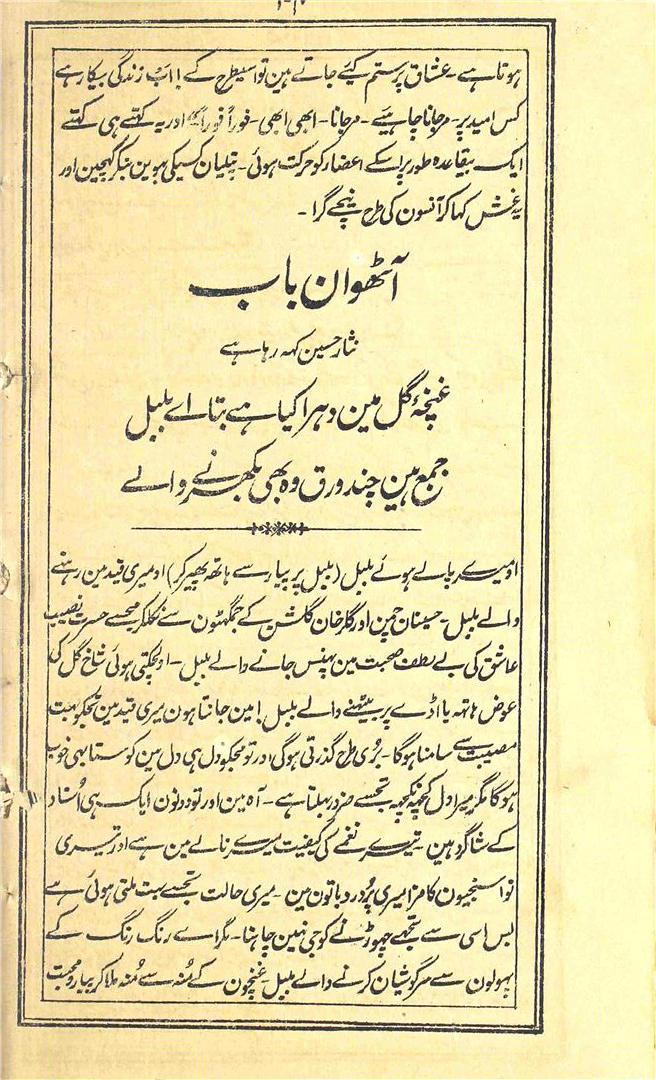 ہوتا ہے۔ عشاق پر ستم کیے جاتے ہین تو اسیطرح کے! اب زندگی بیکار ہے
کس امید پر۔ مرجانا چاہیئے۔ مرجانا۔ ابھی ابھی۔ فوراً فوراً اور یہ کہتے ہی کہتے
ایک بیقاعدہ طور پر اسکے اعضار کو حرکت ہوئی۔ پتلیان کسیکی بہوین بنکر کھچین اور
یہ غش کہا کر آنسون کی طرح نیچے گرا۔
آٹھوان باب
نثار حسین کہہ رہا ہے
غنچۂ گل مین دہرا کیا ہے بتا اے بلبل
جمع ہین چند ورق وہ بھی بکھرنے والے
او میرے پالے ہوئے بلبل (بلبل پر پیار سے ہاتھ پھیر کر) او میری قید مین رہنے
والے بلبل۔ حسینان چمن اور گلرخان گلشن کے جمگھٹون سے نکلکر مجھسے حسرت نصیب
عاشق کی بے لطف صحبت مین پہنس جانے والے بلبل۔ او لچکتی ہوئی شاخ گل کی
عوض ہاتھ یا اڈے پر بیٹھنے والے بلبل! مین جانتا ہون میری قید مین تجکو بہت
مصیبت سے سامنا ہوگا۔ بُری طرح گذرتی ہوگی اور تو مجکو دل ہی دل مین کوستا بھی خوب
ہوگا مگر میرا دل کچھ نکچھ تجسے ضرور بہلتا ہے۔ آہ مین اور تو دونون ایک ہی اُستاد
کے شاگرد ہین۔ تیرے نغمے کی کیفیت میرے نالے مین ہے اور تیری
نوا سنجیون کا مزا میری پُردرد باتون مین۔ میری حالت تجسے بہت ملتی ہوئی ہے
بس اسی سے تجھے چھوڑنے کو جی نہین چاہتا۔ مگر اے رنگ رنگ کے
پہولون سے سرگوشیان کرنے والے بلبل۔ غنچون کے مُنہ سے مُنہ ملا کر پیار و محبت